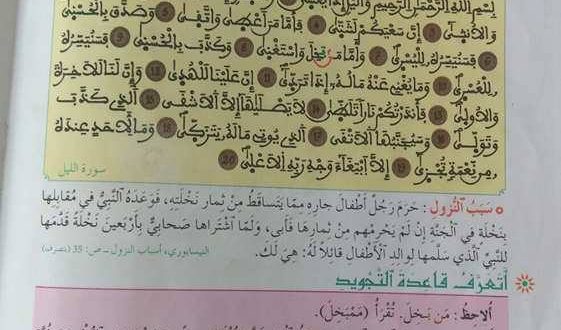 بِسْمِ اللهِ الرَّحْمَٰنِ الرَّحِيمِ وَالَّيْلِ إِذَا
وَالْأُنثَىٰ 3 إِنَّ سَعْيَكُمْ لَشَتَّىٰ 4 فَأَمَّا مَنْ أَعْطَىٰ وَاتَّقَىٰ 5 وَصَدَّقَ بِالْحُسْنَىٰ
6 فَسَنُيَسِّرُهُ لِلْيُسْرَىٰ 7 وَأَمَّا مَنۢ بَخِلَ وَاسْتَغْنَىٰ 8 وَكَذَّبَ بِالْحُسْنَىٰ 9 فَسَنُيَسِّرُهُ
لِلْعُسْرَىٰ 10 وَمَا يُغْنِي عَنْهُ مَالُهُ إِذَا تَرَدَّىٰ 11 إِنَّ عَلَيْنَا لَلْهُدَىٰ 12 وَإِنَّ لَنَا لَلْآخِرَةَ
وَالْأُولَىٰ 13 فَأَنذَرْتُكُمْ نَارًا تَلَظَّىٰ 14 لَا يَصْلَاهَا إِلَّا الْأَشْقَى 15 الَّذِي كَذَّبَ
وَتَوَلَّىٰ 16 وَسَيُجَنَّبُهَا الْأَتْقَى 17 الَّذِي يُوتِي مَالَهُ يَتَزَكَّىٰ 18 وَمَا لِأَحَدٍ عِندَهُ
مِن نِّعْمَةٍ تُجْزَىٰ 19 إِلَّا ابْتِغَاءَ وَجْهِ رَبِّهِ الْأَعْلَىٰ 20
سورة الليل
سَبَبُ النُّزولِ : حَرَمَ رَجُلٌ أَطْفالَ جارِهِ مِمّا يَتَساقَطُ مِنْ ثِمارِ نَخْلَتِهِ، فَوَعَدَهُ النَّبِيُّ في مُقابِلِها
بِنَخْلَةٍ في الْجَنَّةِ إِنْ لَمْ يَحْرِمْهُم مِنْ ثِمارِها فَأَبى، وَلَمّا اشْتَراها صَحابِيٌّ بِأَرْبَعينَ نَخْلَةً قَدَّمَها
لِلنَّبِيِّ الَّذي سَلَّمَها لِوالِدِ الْأَطْفالِ قائِلًا لَهُ: هِيَ لَكَ. النيسابوري، أسباب النزول ـ ص: 35 (بتصرف)
أَتَعَرَّفُ قاعِدَةَ التَّجْويدِ
أُلاحِظُ : مَنۢ بَخِلَ. تُقْرَأُ (مَمْبَخِلَ).